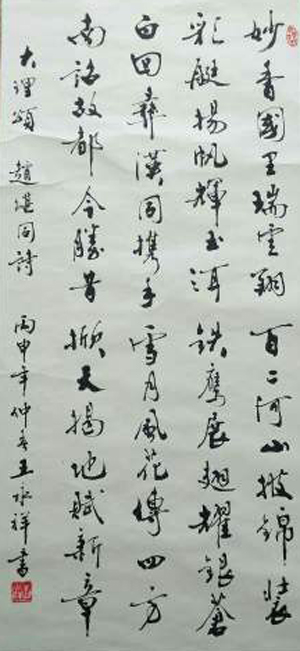 妙香國里瑞雲翔百二河山披錦裝
彩艇揚帆輝玉洱鉄鷹展翅耀銀蒼
白回彝漢同攜手雪月風花傳四方
南詔故都今勝昔掀天揭地賦新章
大理頌 趙湛同詩 丙申年仲春王永祥書